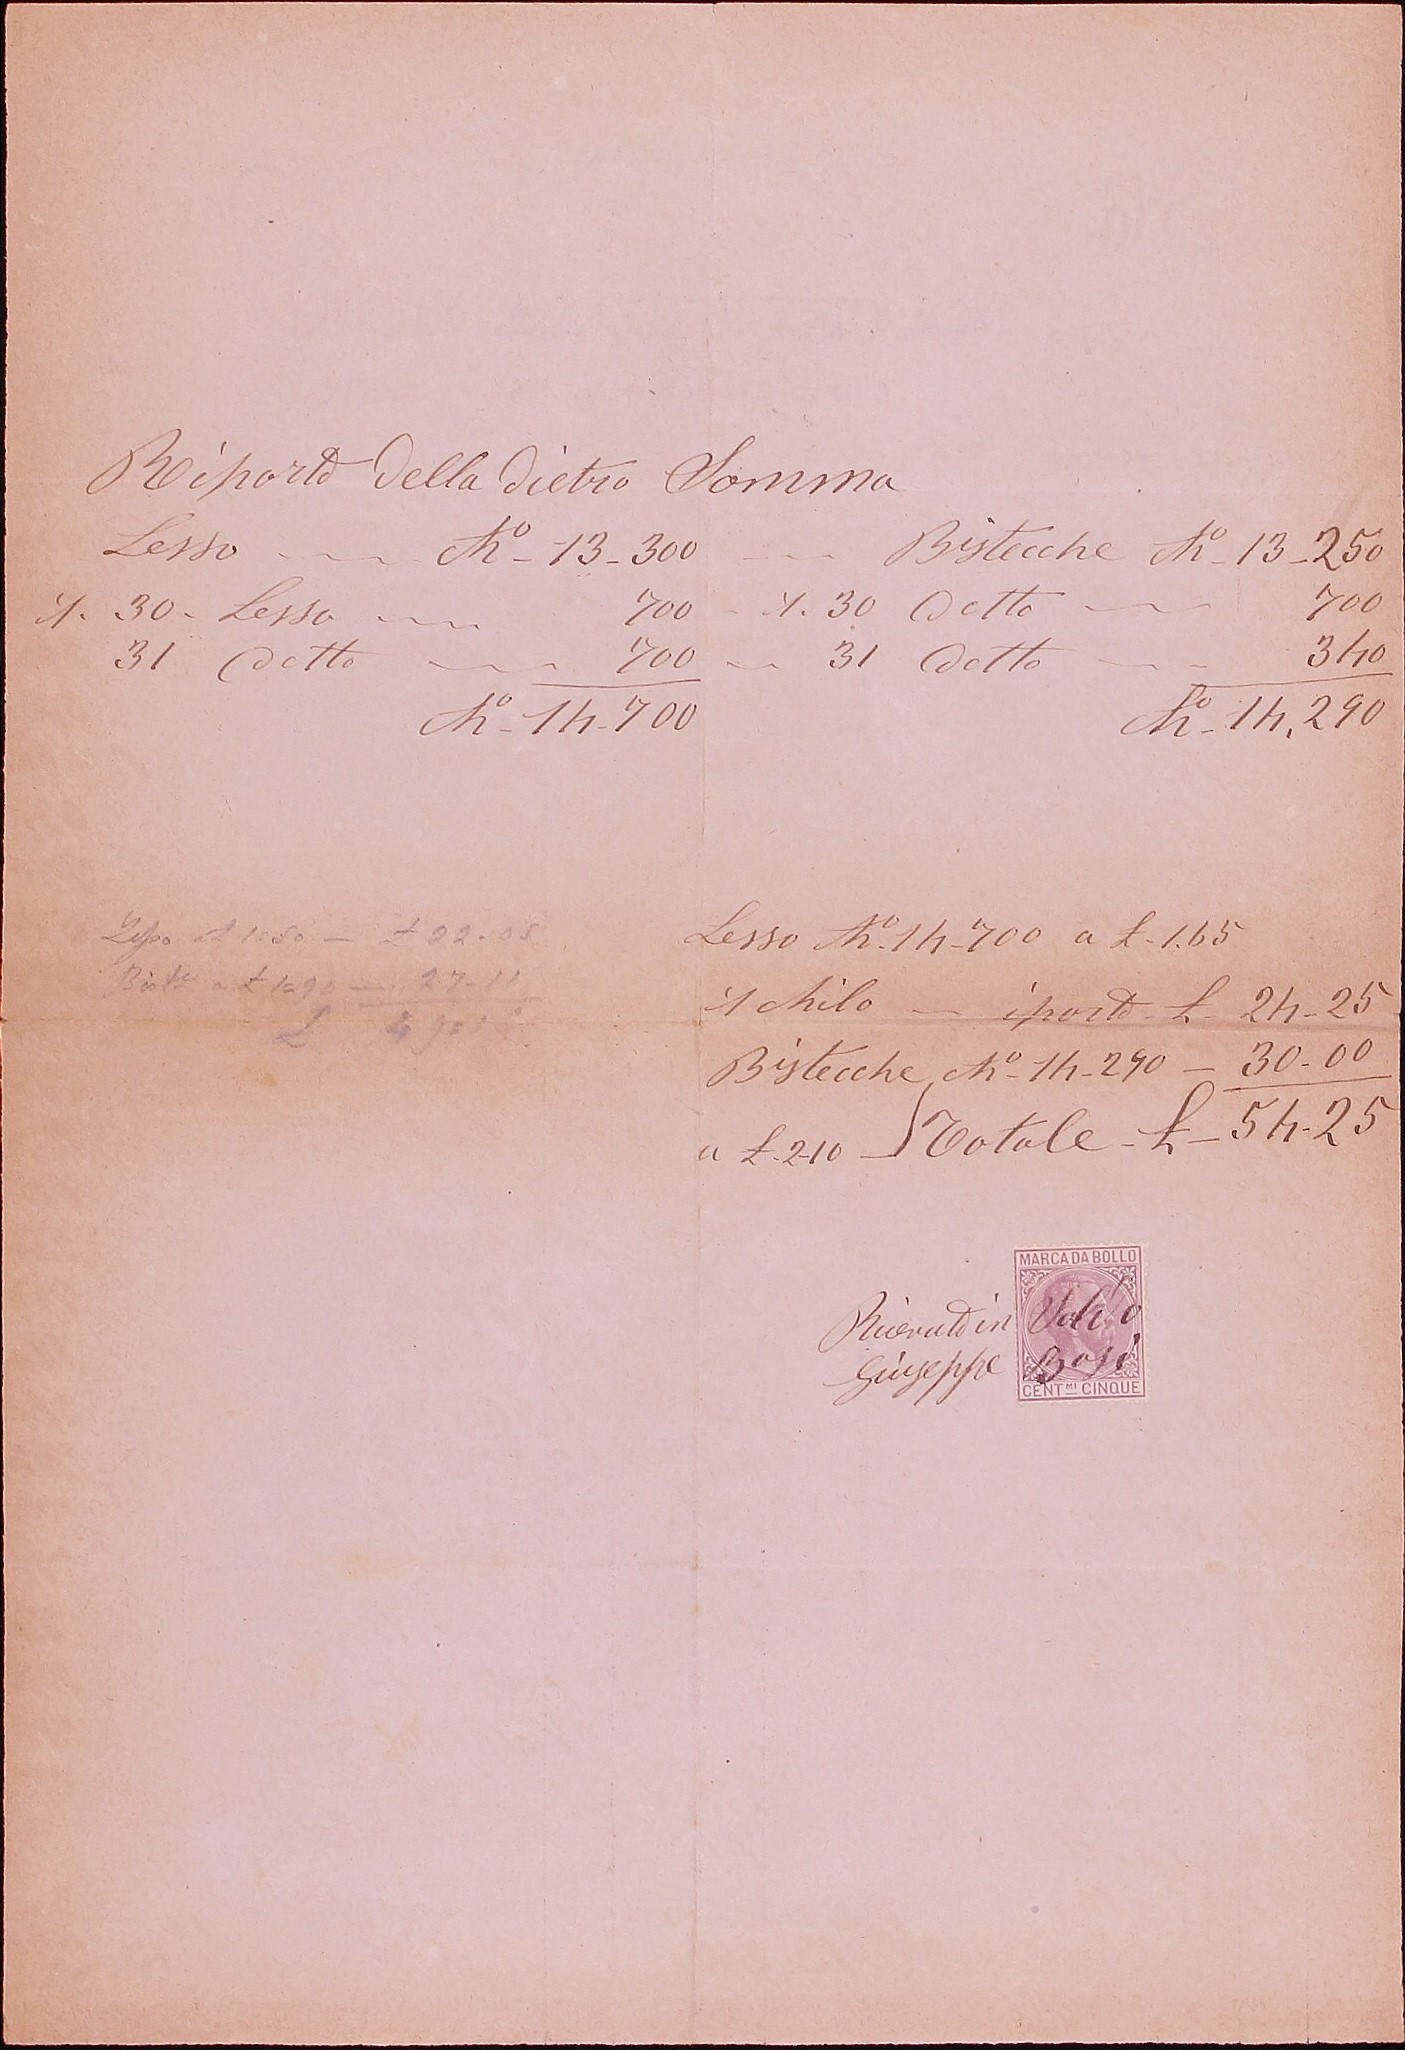 Riporto della dietro Somma
Lesso Cho - 13 - 300 Bistecche Cho - 13 - 250
il. 30 - Lesso 700 - il. 30 Detto 700
31 Detto 700 31 Detto 340
Cho - 14 - 700 Cho - 14,290
Lesso a £ 1=50 — £ 22-05
Bistc a £ 1=90 — 27-11
£ 49=16
Lesso Cho - 14 - 700 a £ - 1.65
il Chilo iporto £ 24-25
Bistecche Cho - 14 - 290 — 30-00
a £ - 2-10 Totale - £ - 54-25
MARCA DA BOLLO
Ricevuto in Saldo
Giuseppe Bosi
CENT.MI CINQUE